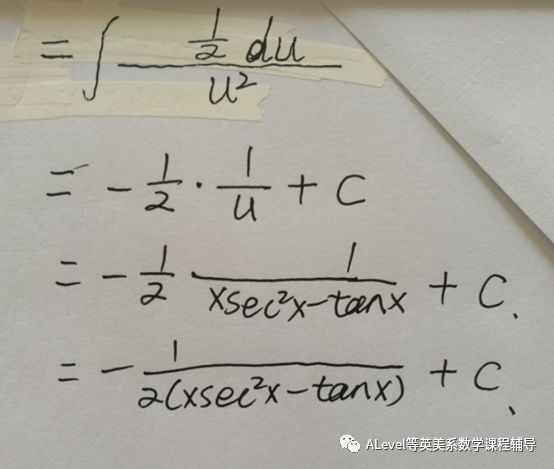 = ∫ (1/2 du)/(u²)
= - 1/2 · 1/u + C
= - 1/2 · 1/(xsec²x-tanx) + C.
= - 1/(2(xsec²x-tanx)) + C、
ALevel等英美系数学课程辅导